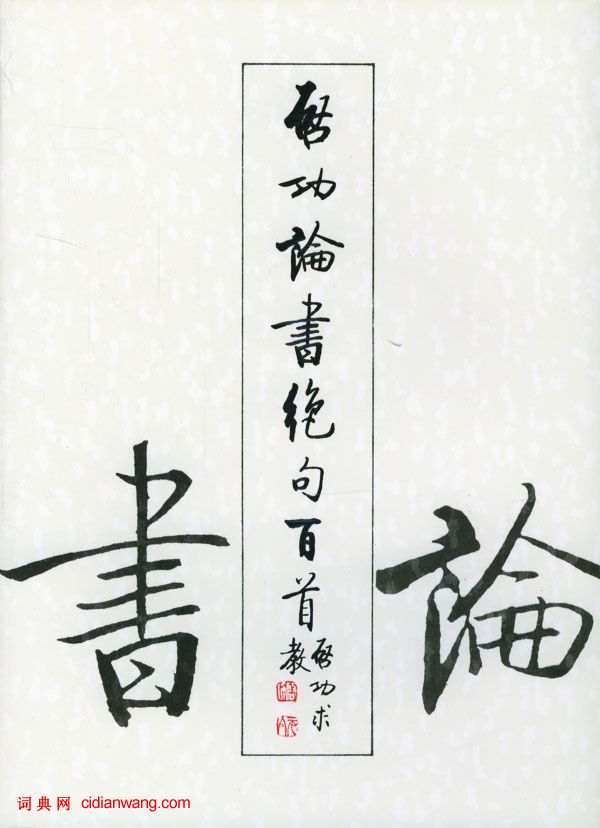 啓功論書絶句百首
啓功求
教
論
書
词典网 cidianwang.com